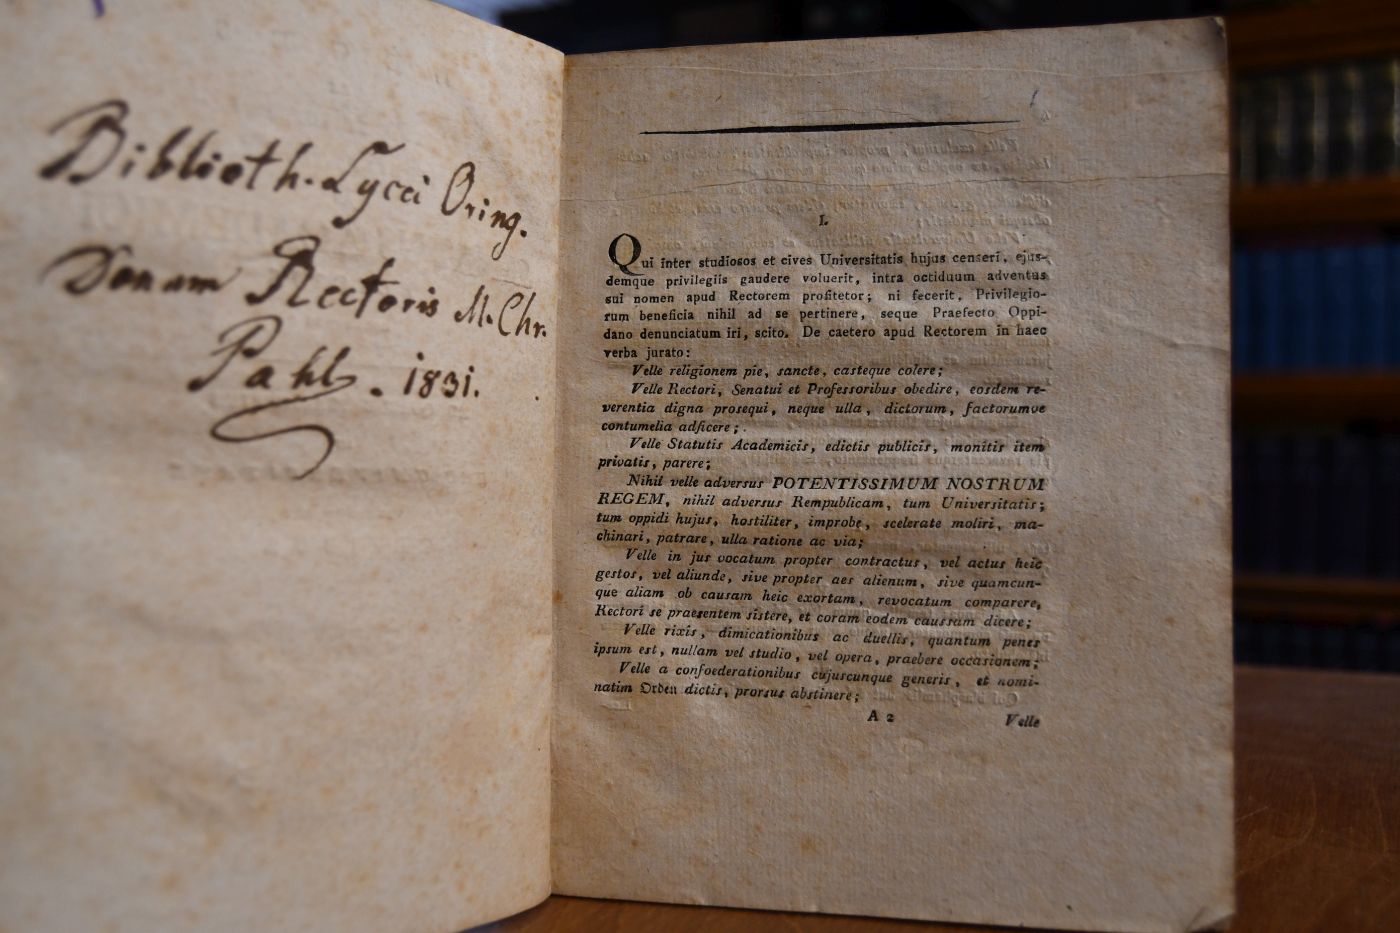 Biblioth. Lycei Oring.
Donum Rectoris M. Chr.
Pahl. 1831.
I.
Qui inter studiosos et cives Universitatis hujus censeri, ejus-
demque privilegiis gaudere voluerit, intra octiduum adventus
sui nomen apud Rectorem profitetor; ni fecerit, Privilegio-
rum beneficia nihil ad se pertinere, seque Praefecto Oppi-
dano denunciatum iri, scito. De caetero apud Rectorem in haec
verba jurato:
Velle religionem pie, sancte, casteque colere;
Velle Rectori, Senatui et Professoribus obedire, eosdem re-
verentia digna prosequi, neque ulla, dictorum, factorumve
contumelia adficere;
Velle Statutis Academicis, edictis publicis, monitis item
privatis, parere;
Nihil velle adversus POTENTISSIMUM NOSTRUM
REGEM, nihil adversus Rempublicam, tum Universitatis;
tum oppidi hujus, hostiliter, improbe, scelerate moliri, ma-
chinari, patrare, ulla ratione ac via;
Velle in jus vocatum propter contractus, vel actus heic
gestos, vel aliunde, sive propter aes alienum, sive quamcun-
que aliam ob causam heic exortam, revocatum comparere,
Rectori se praesentem sistere, et coram eodem caussam dicere;
Velle rixis, dimicationibus ac duellis, quantum penes
ipsum est, nullam vel studio, vel opera, praebere occasionem;
Velle a confoederationibus cujuscunque generis, et nomi-
natim Orden dictis, prorsus abstinere;
A 2
Velle